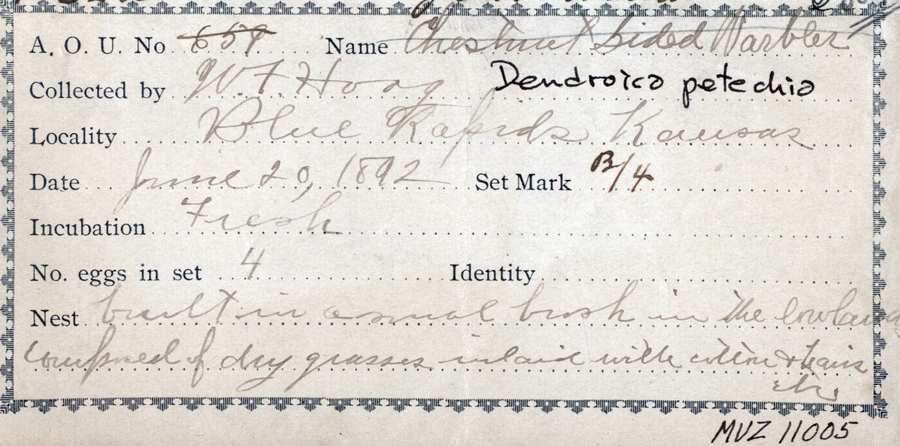 A. O. U. No 659 Name Chestnut Sided Warbler
Collected by W. F. Hoag Dendroica petechia
Locality Blue Rapids Kansas
Date June 20, 1892 Set Mark B/4
Incubation Fresh
No. eggs in set 4 Identity
Nest built in a small bush in the lowland
composed of dry grasses inlaid with cotton & hairs
etc.
MVZ 11005